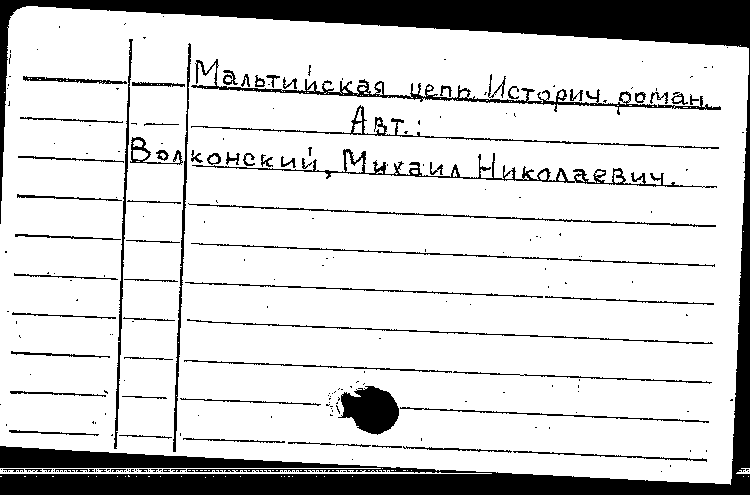 Мальтийская цепь Историч. роман.
Авт.:
Волконский, Михаил Николаевич.